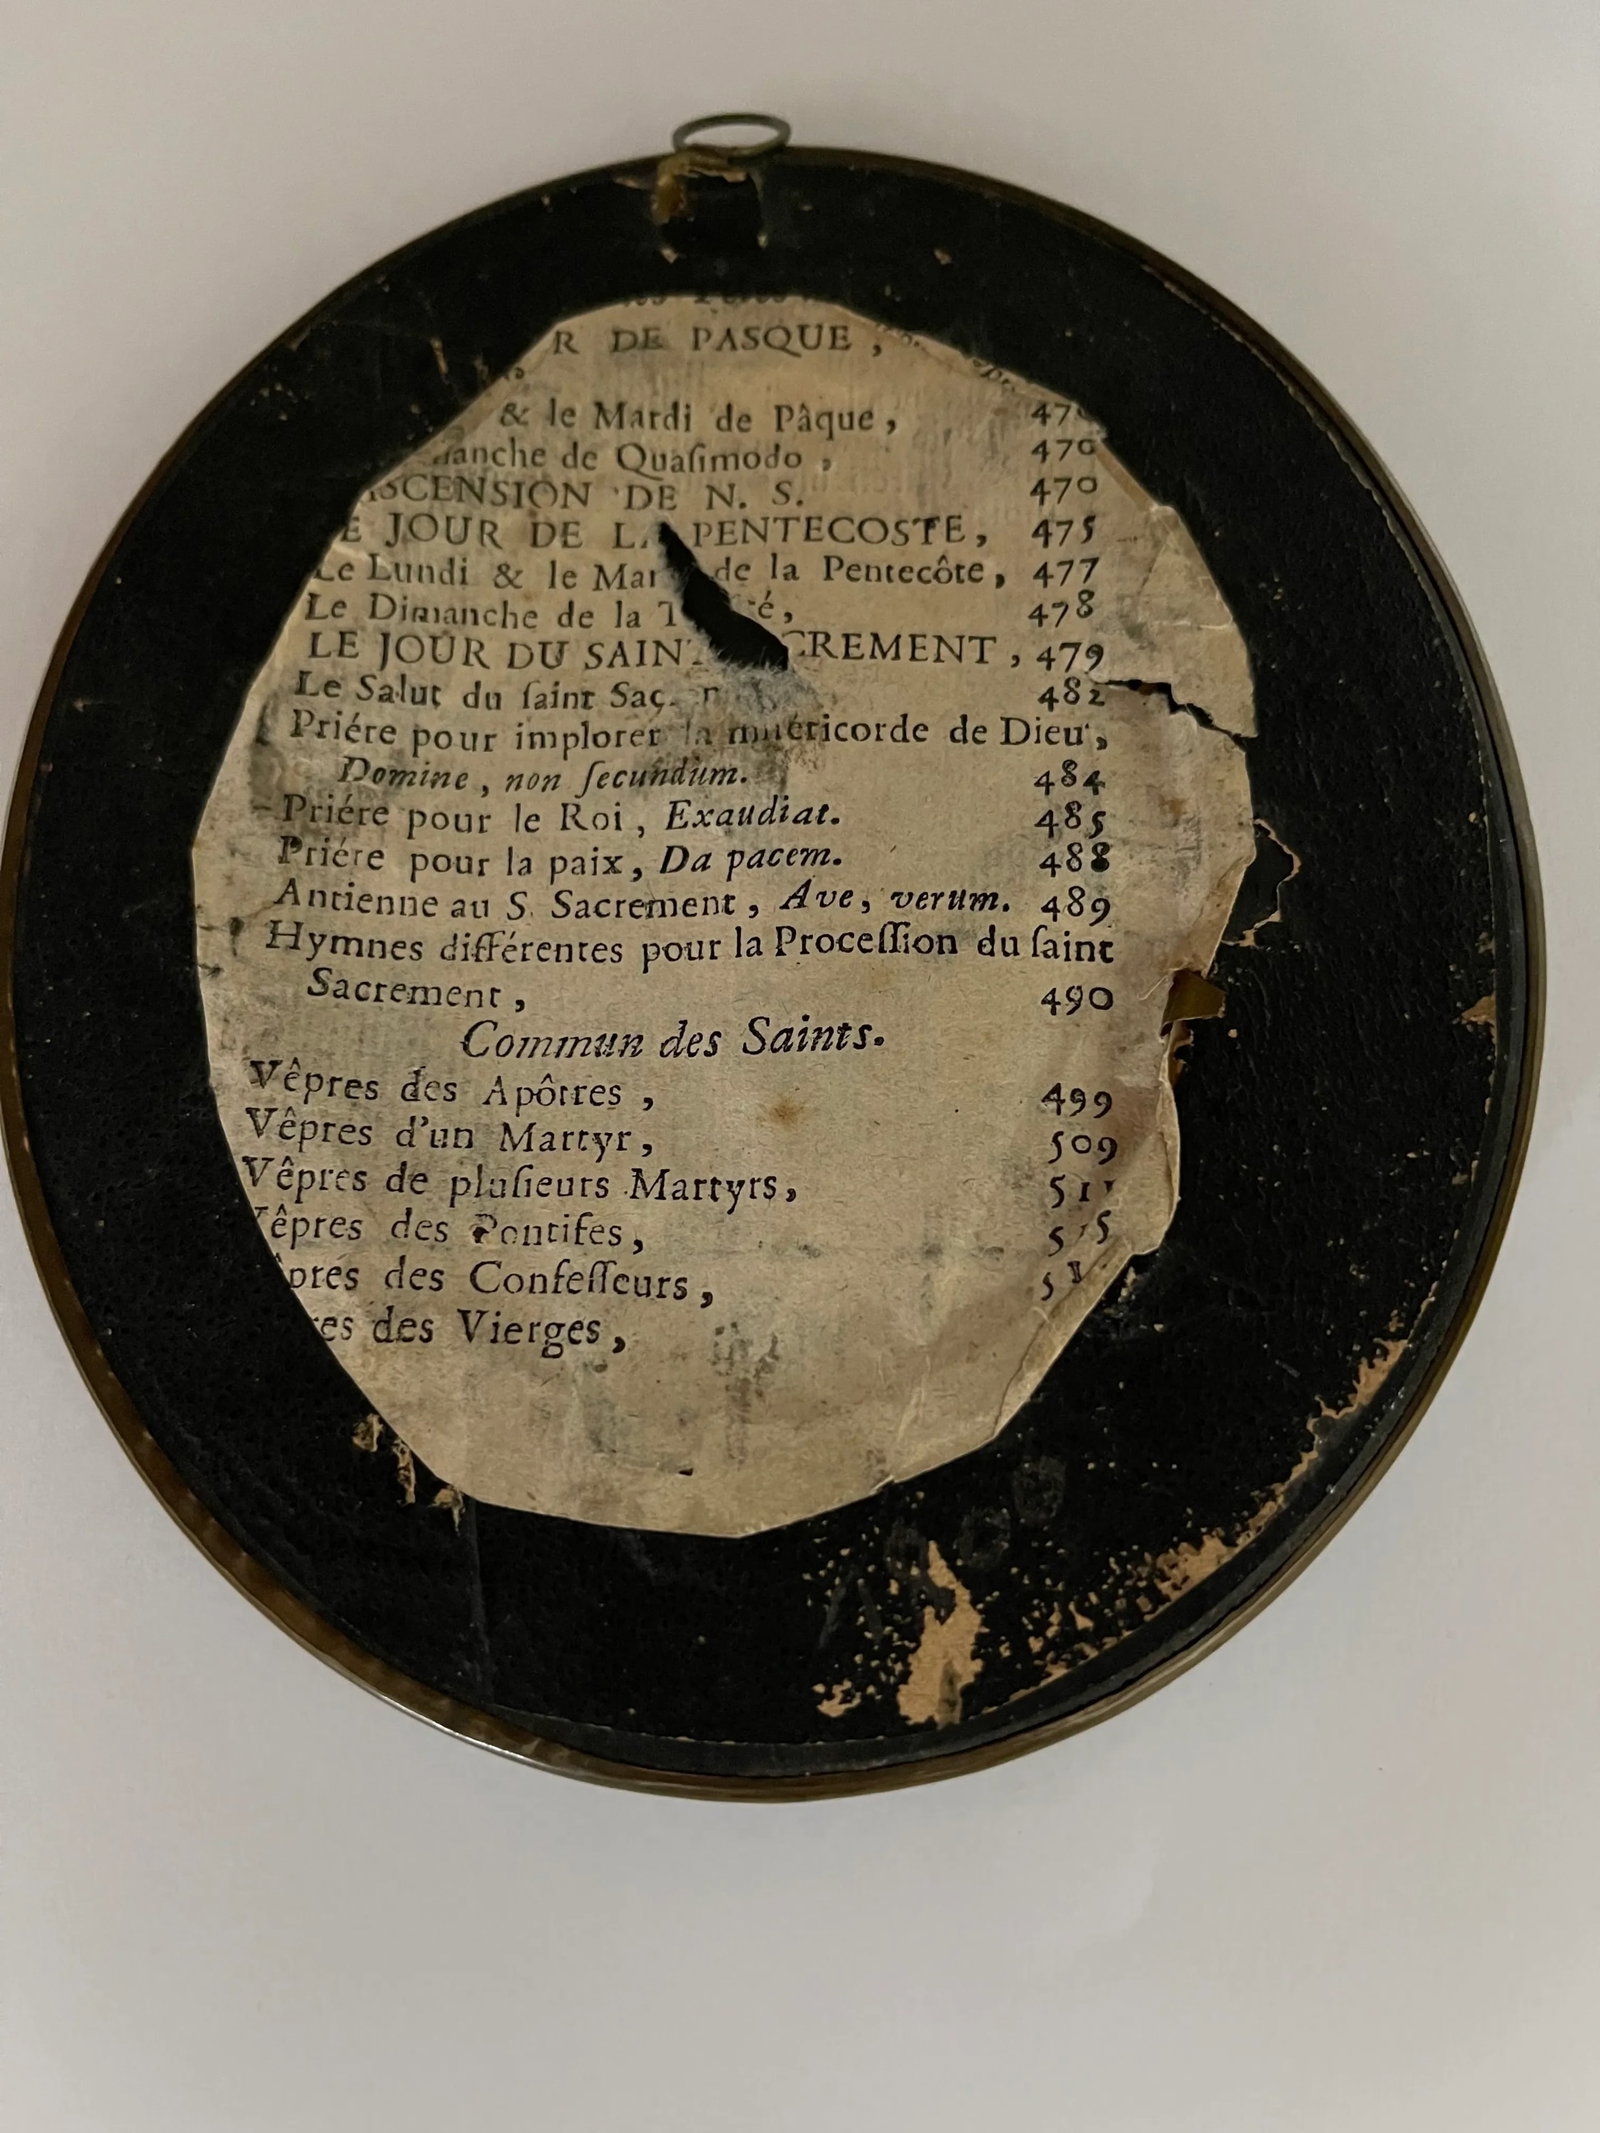 R DE PASQUE,
& le Mardi de Pâque, 470
manche de Quaſimodo, 470
ASCENSION DE N. S. 470
E JOUR DE LA PENTECOSTE, 475
Le Lundi & le Mar de la Pentecôte, 477
Le Dimanche de la T té, 478
LE JOUR DU SAINT CREMENT, 479
Le Salut du ſaint Sac 482
Priére pour implorer la miſéricorde de Dieu,
Domine, non ſecundùm. 484
Priére pour le Roi, Exaudiat. 485
Priére pour la paix, Da pacem. 488
Antienne au S. Sacrement, Ave, verum. 489
Hymnes différentes pour la Proceſſion du ſaint
Sacrement, 490
Commun des Saints.
Vêpres des Apôtres, 499
Vêpres d'un Martyr, 509
Vêpres de pluſieurs Martyrs, 51
Vêpres des Pontifes, 515
êpres des Confeſſeurs, 51
res des Vierges,